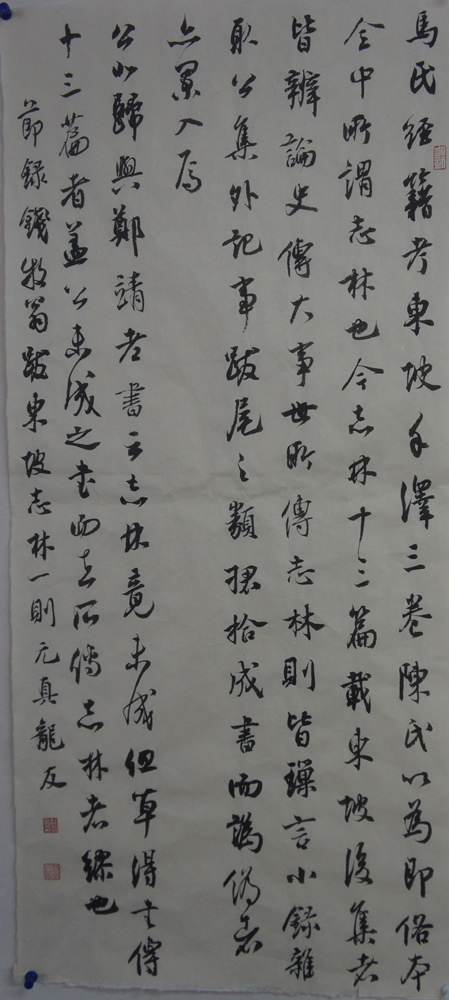 馬氏經籍考東坡手澤三卷陳氏以為即俗本
今中所謂志林也今志林十三篇載東坡後集者
皆辨論史傳大事世所傳志林則皆璅言小錄雜
取公集外記事跋尾之類捃拾成書而譌偽者
亦闌入焉
公北歸與鄭靖老書云志林竟未成但草得書傳
十三篇者蓋公未成之書而世所傳志林者繆也
節錄錢牧翁跋東坡志林一則元真龍友